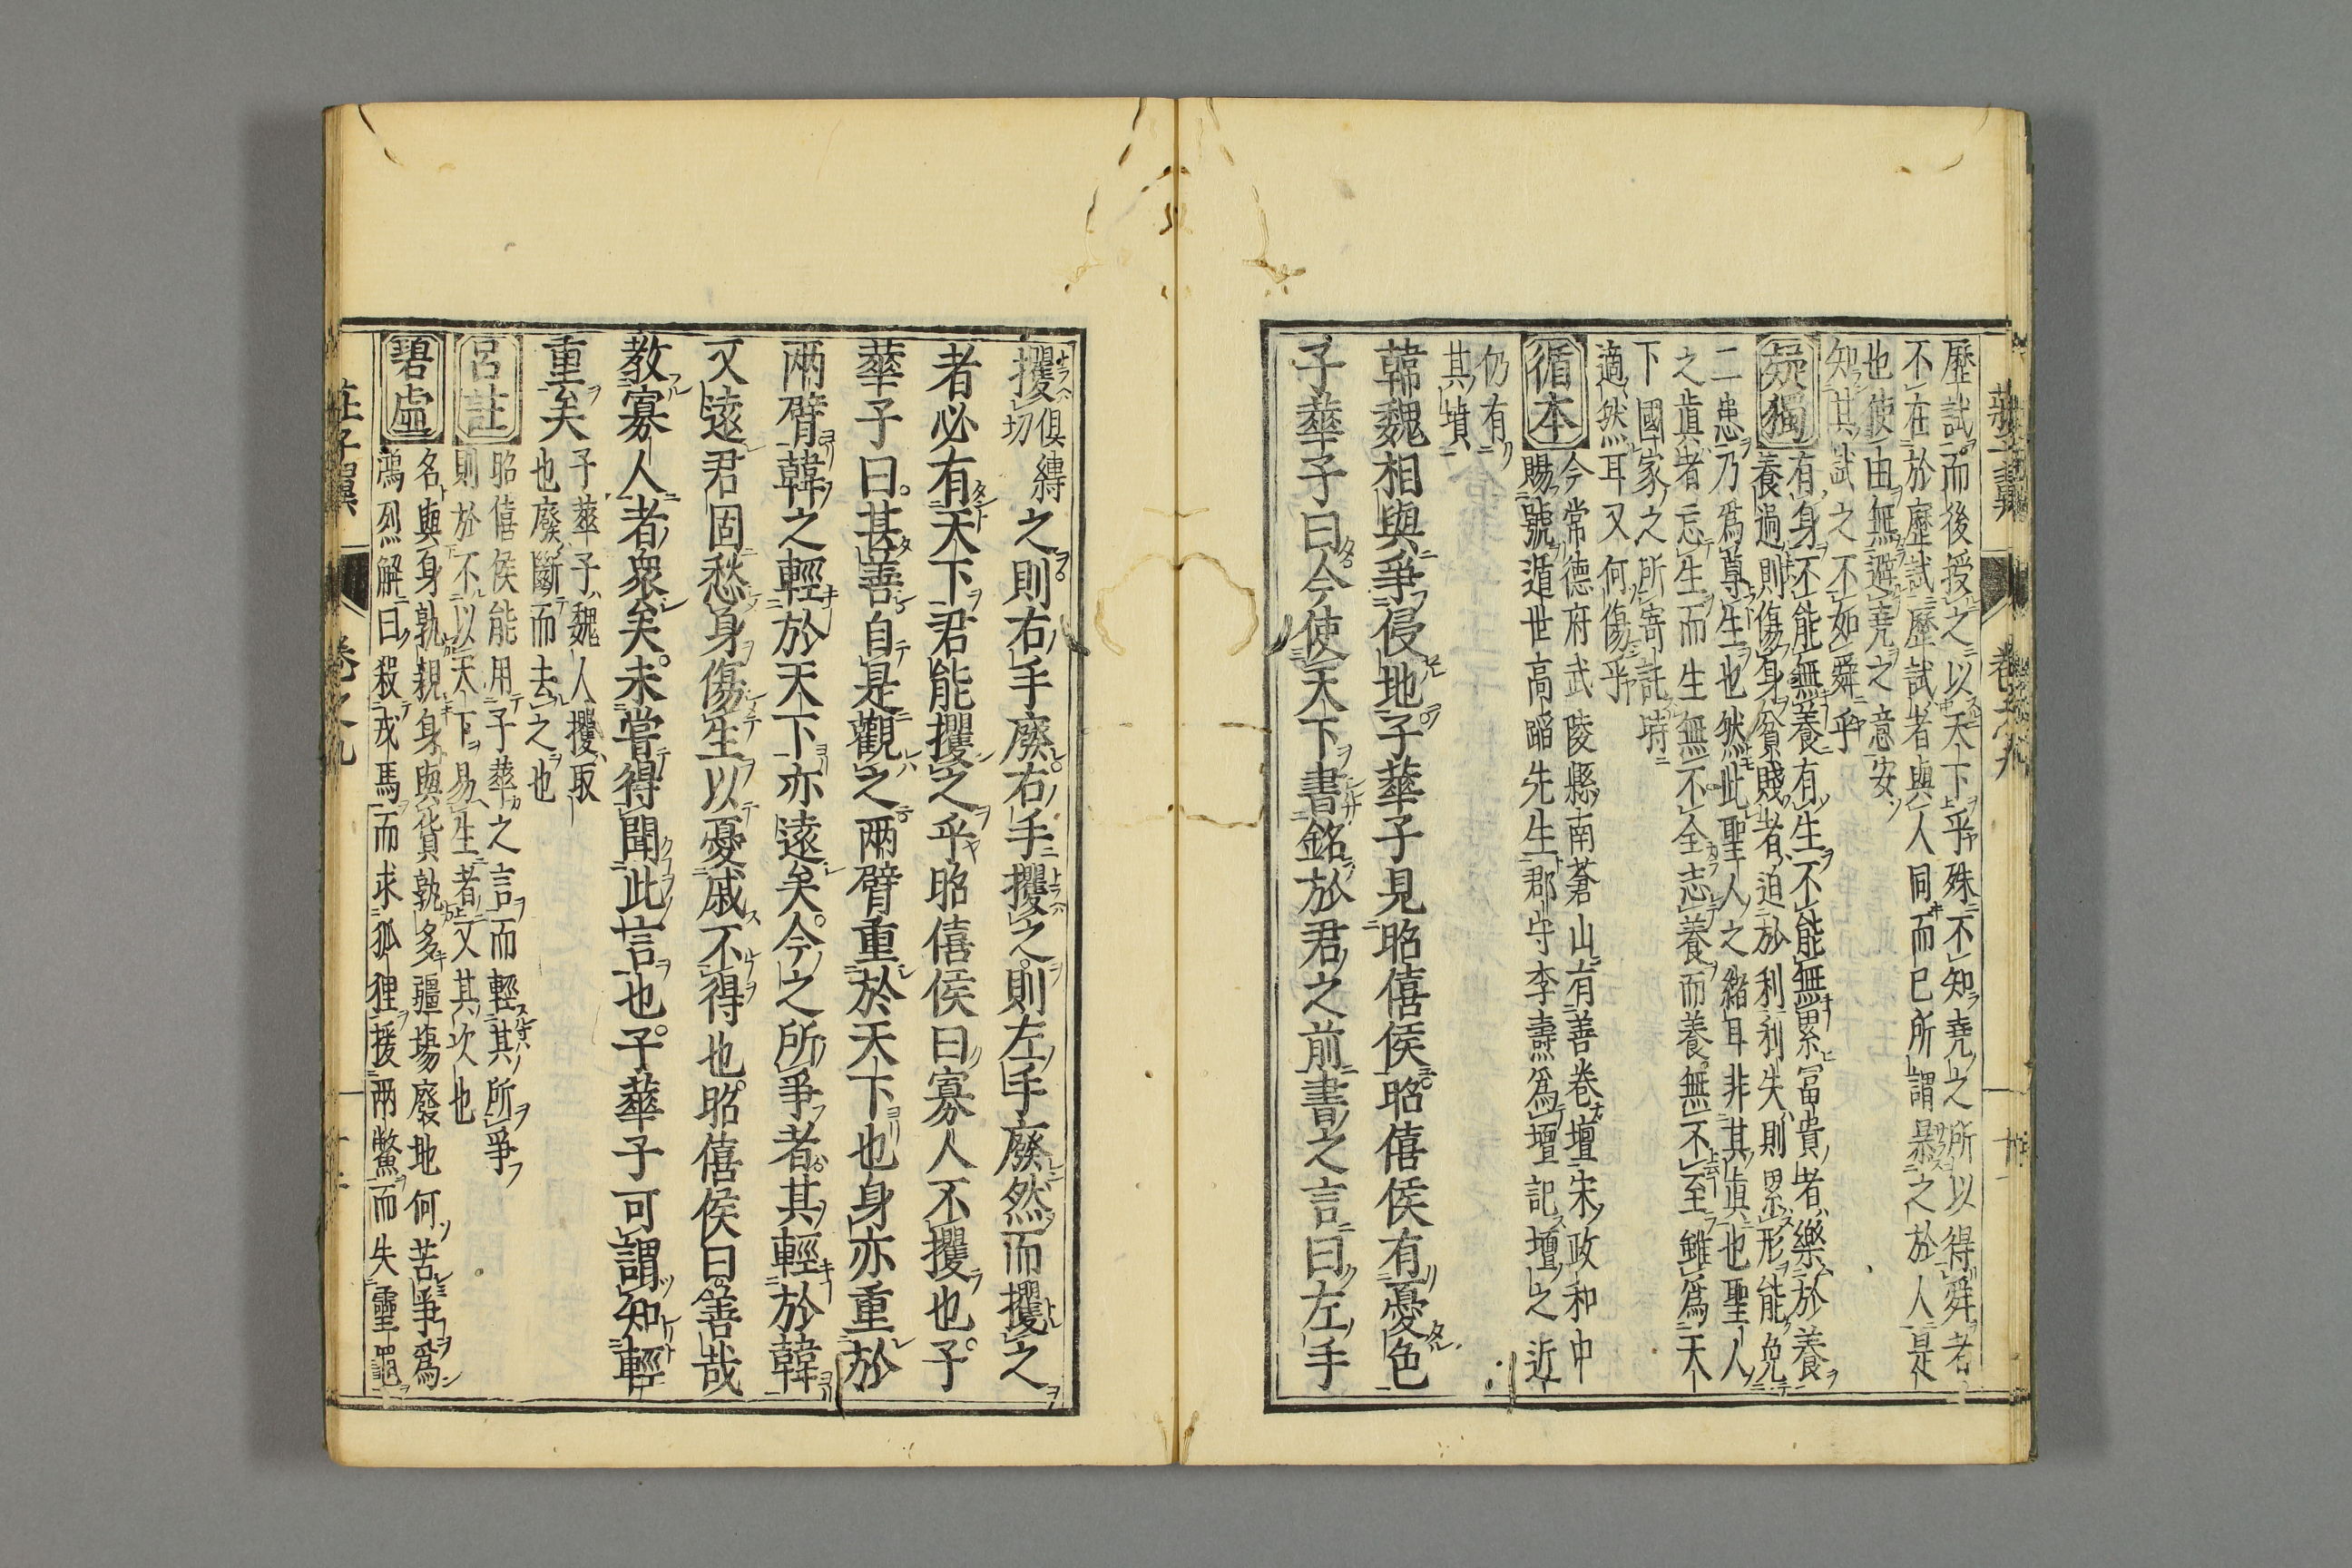 歷試而後授之以天下乎殊不知堯之所以得舜者
不在於歷試歷試者與人同而已所謂暴之於人是
也使由無避堯之意安
知其試之不如舜乎
疑獨
有身不能無養有生不能無累富貴者樂於養
養過則傷身貧賤者迫於利利失則累形能免
二患乃為尊生也然此聖人之緒耳非其眞也聖人
之眞者忘生而生無不全志養而養無不至雖為天
下國家之所寄託時
適然耳又何傷乎
循本
今常德府武陵縣南蒼山有善卷壇宋政和中
賜號遁世高蹈先生郡守李燾為壇記壇之近
仍有
其墳
韓魏相與爭侵地子華子見昭僖侯昭僖侯有憂色
子華子曰今使天下書銘於君之前書之言曰左手
攫俱縛切之則右手廢右手攫之則左手廢然而攫之
者必有天下君能攫之乎昭僖侯曰寡人不攫也子
華子曰甚善自是觀之兩臂重於天下也身亦重於
兩臂韓之輕於天下亦遠矣今之所爭者其輕於韓
又遠君固愁身傷生以憂戚不得也昭僖侯曰善哉
教寡人者衆矣未嘗得聞此言也子華子可謂知輕
重矣
子華子魏人攫取
也廢斷而去之也
呂註
昭僖侯能用子華之言而輕其所爭
則於不以天下易生者又其次也
碧虛
名與身孰親身與貨孰多疆場廢地何苦爭為
鴻烈解曰殺戎馬而求狐狸援兩鱉而失靈龜
莊子翼
卷之九